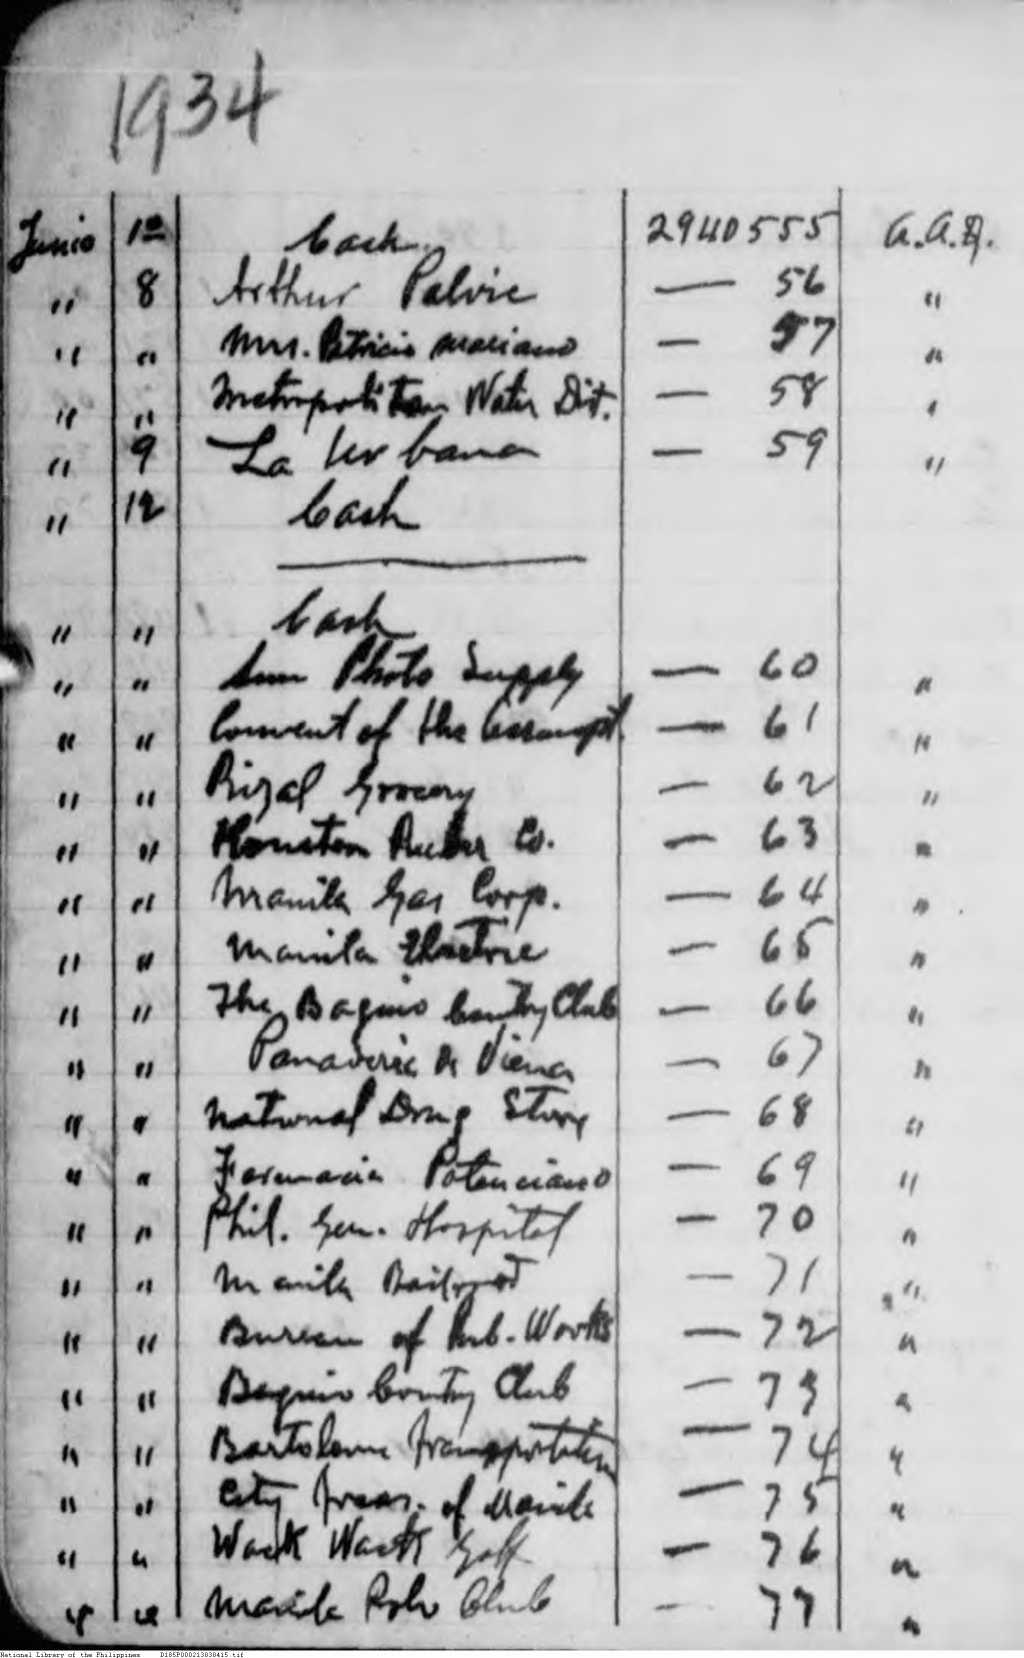 1934
Junio 1º Cash 2940555 A.A.
" 8 Arthur Palvie — 56 "
" " Mrs. Patricio Mariano — 57 "
" " Metropolitan Water Dist. — 58 "
" 9 La Urbana — 59 "
" 12 Cash
" " Cash
" " Sun Photo Supply — 60 "
" " Convent of the Assumpt. — 61 "
" " Rizal Grocery — 62 "
" " Houston Rubber Co. — 63 "
" " Manila Gas Corp. — 64 "
" " Manila Electric — 65 "
" " The Baguio Country Club — 66 "
" " Panaderia de Viena — 67 "
" " National Drug Store — 68 "
" " Farmacia Potenciano — 69 "
" " Phil. Gen. Hospital — 70 "
" " Manila Railroad — 71 "
" " Bureau of Pub. Works — 72 "
" " Baguio Country Club — 73 "
" " Bartolome Transportation — 74 "
" " City Treas. of Manila — 75 "
" " Wack Wack Golf — 76 "
" " Manila Polo Club — 77 "
National Library of the Philippines D185P000213838415.tif